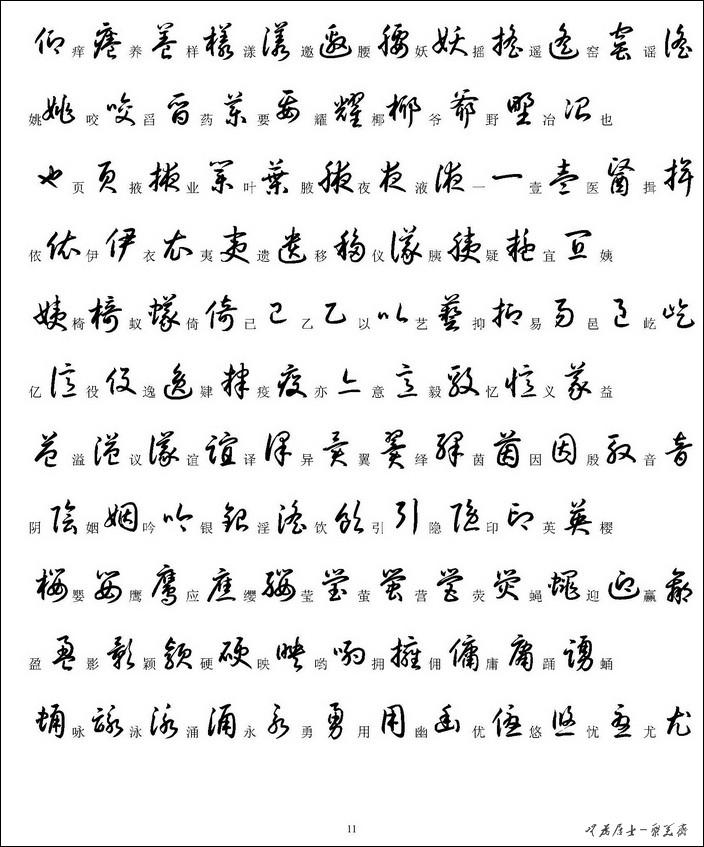 仰 痒 癢 养 養 样 樣 漾 漾 邀 邀 腰 腰 妖 妖 摇 搖 遥 遙 窑 窯 谣 謠
姚 姚 咬 咬 舀 舀 药 藥 要 要 耀 耀 椰 椰 爷 爺 野 野 冶 冶 也
也 页 頁 掖 掖 业 業 叶 葉 腋 腋 夜 夜 液 液 一 一 壹 壹 医 醫 揖 揖
依 依 伊 伊 衣 衣 夷 夷 遗 遺 移 移 仪 儀 胰 胰 疑 疑 宜 宜 姨
姨 椅 椅 蚁 蟻 倚 倚 已 已 乙 乙 以 以 艺 藝 抑 抑 易 易 邑 邑 屹 屹
亿 億 役 役 逸 逸 肄 肄 疫 疫 亦 亦 意 意 毅 毅 忆 憶 义 義 益
益 溢 溢 议 議 谊 誼 译 譯 异 異 翼 翼 绎 繹 茵 茵 因 因 殷 殷 音 音
阴 陰 姻 姻 吟 吟 银 銀 淫 淫 饮 飲 引 引 隐 隱 印 印 英 英 樱
櫻 婴 嬰 鹰 鷹 应 應 缨 纓 莹 瑩 萤 螢 营 營 荧 熒 蝇 蠅 迎 迎 赢 贏
盈 盈 影 影 颖 穎 硬 硬 映 映 哟 喲 拥 擁 佣 傭 庸 庸 踊 踴 蛹
蛹 咏 詠 泳 泳 涌 涌 永 永 勇 勇 用 用 幽 幽 优 優 悠 悠 忧 憂 尤 尤
11